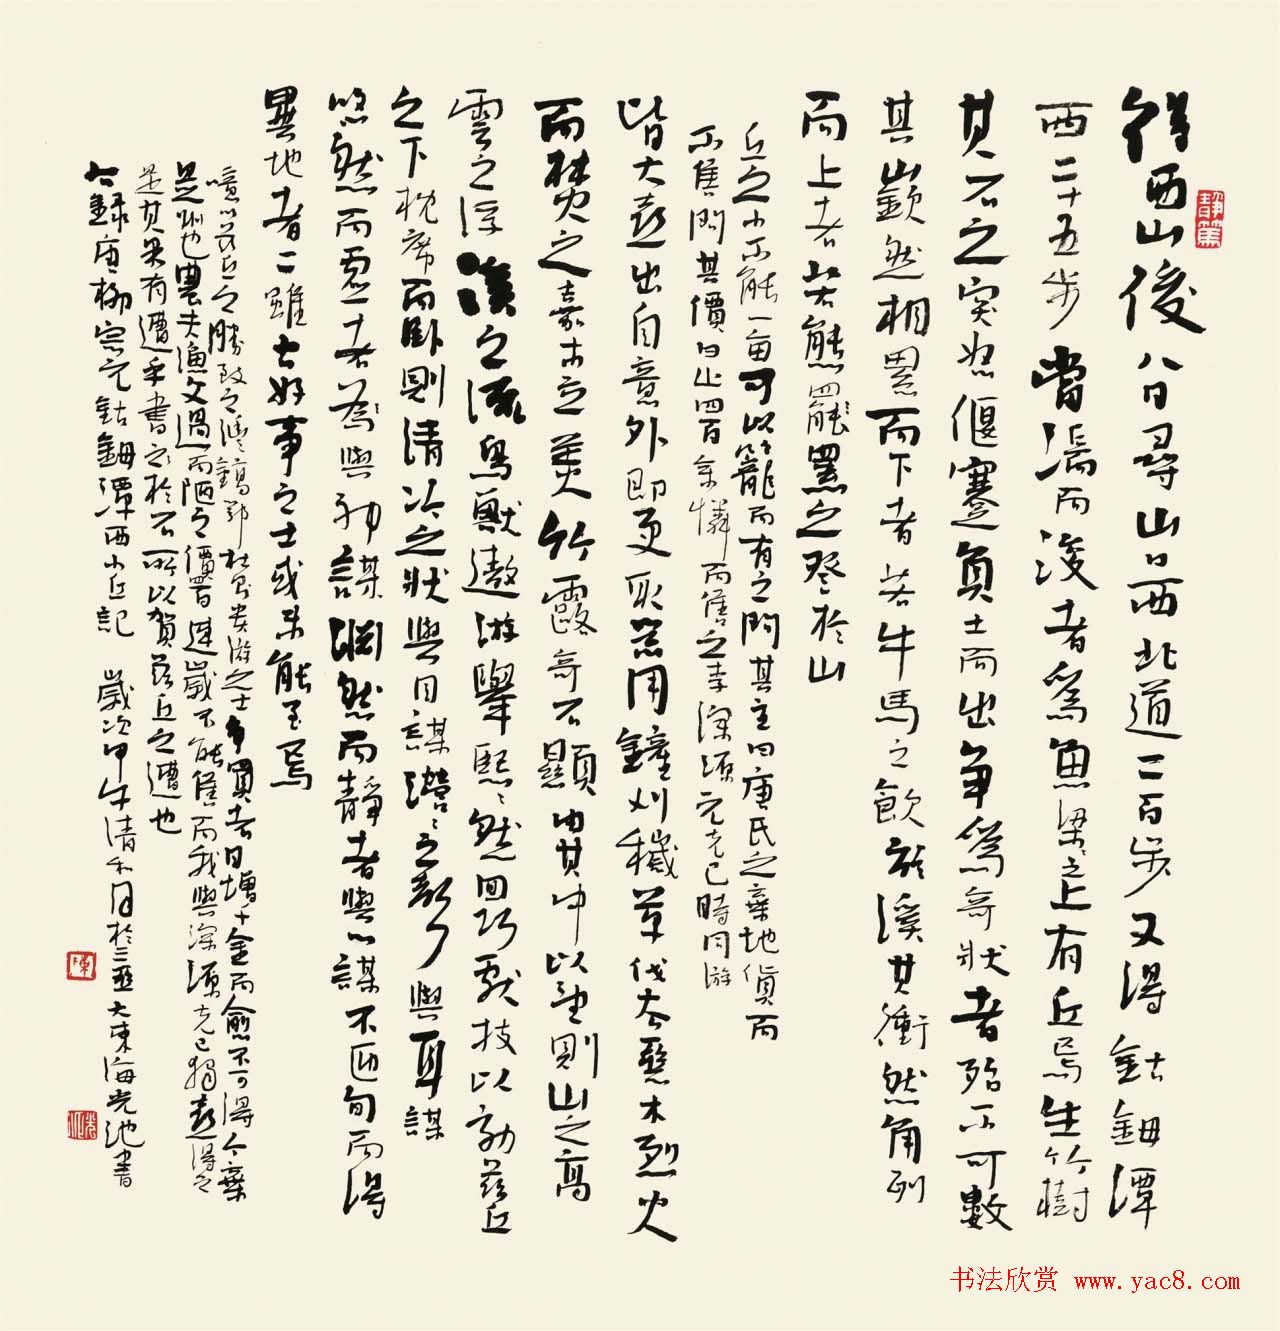 得西山後八日尋山口西北道二百步又得鈷鉧潭
西二十五步當湍而浚者為魚梁梁之上有丘焉生竹樹
其石之突怒偃蹇負土而出爭為奇狀者殆不可數
其嶔然相累而下者若牛馬之飲於溪其衝然角列
而上者若熊羆之登於山
丘之小不能一畝可以籠而有之問其主曰唐氏之棄地貨而
不售問其價曰止四百余憐而售之李深源元克己時同游
皆大喜出自意外即更取器用鏟刈穢草伐去惡木烈火
而焚之嘉木立美竹露奇石顯由其中以望則山之高
雲之浮溪之流鳥獸遨游舉熙熙然回巧獻技以效茲丘
之下枕席而臥則清泠之狀與目謀瀯瀯之聲與耳謀
悠然而虛者與神謀淵然而靜者與心謀不匝旬而得
異地者二雖古好事之士或未能至焉
噫以茲丘之勝致之灃鎬鄠杜則貴游之士爭買者日增千金而愈不可得今棄
是州也農夫漁父過而陋之價四百連歲不能售而我與深源克己獨喜得之
是其果有遭乎書之於石所以賀茲丘之遭也
右錄唐柳宗元鈷鉧潭西小丘記 歲次甲午清和月於三亞大東海光池書
书法欣赏 www.yac8.com